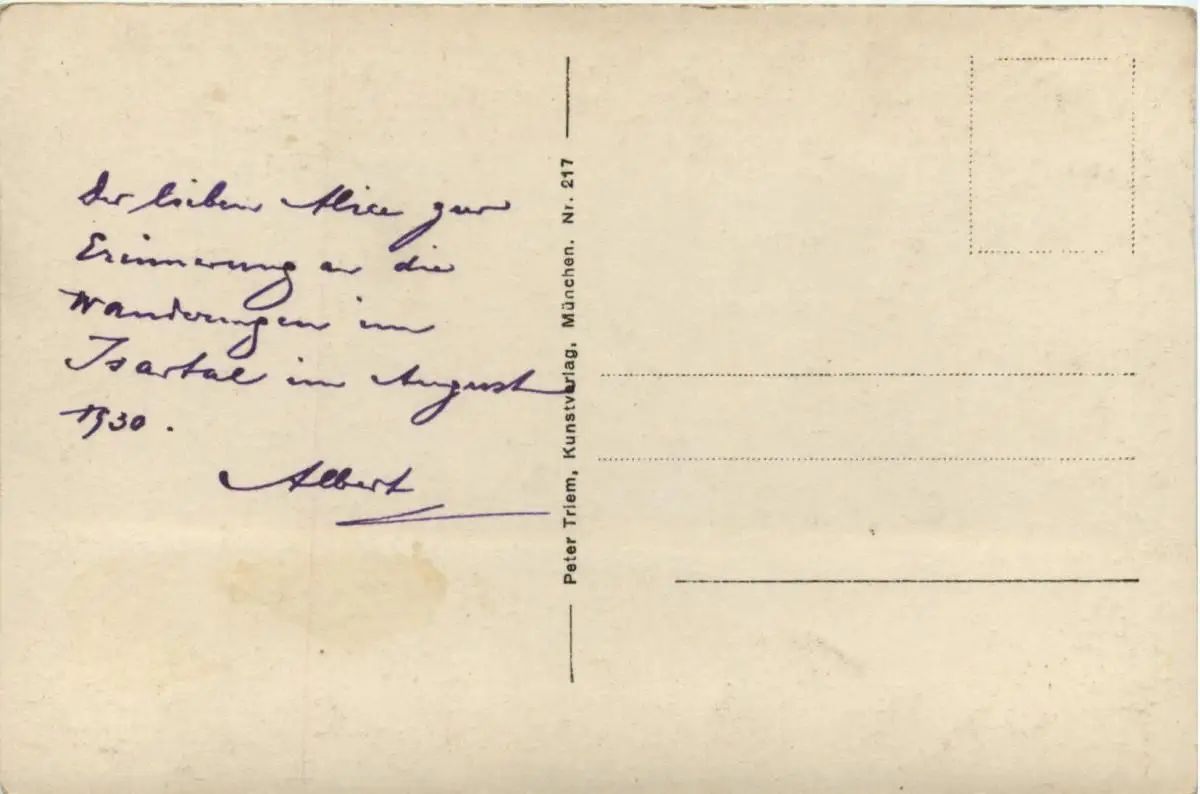 Der lieben Alice zur
Erinnerung an die
Wanderungen im
Isartal im August
1930.
Albert
Peter Triem, Kunstverlag, München. Nr. 217